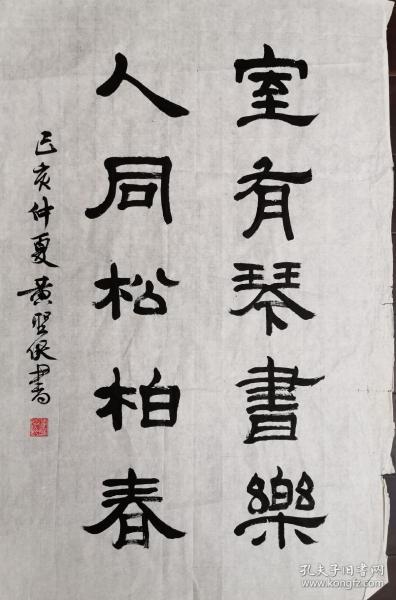 室有琴書樂
人同松柏春
己亥仲夏黄聖保書
孔夫子旧书网
www.kongfz.com